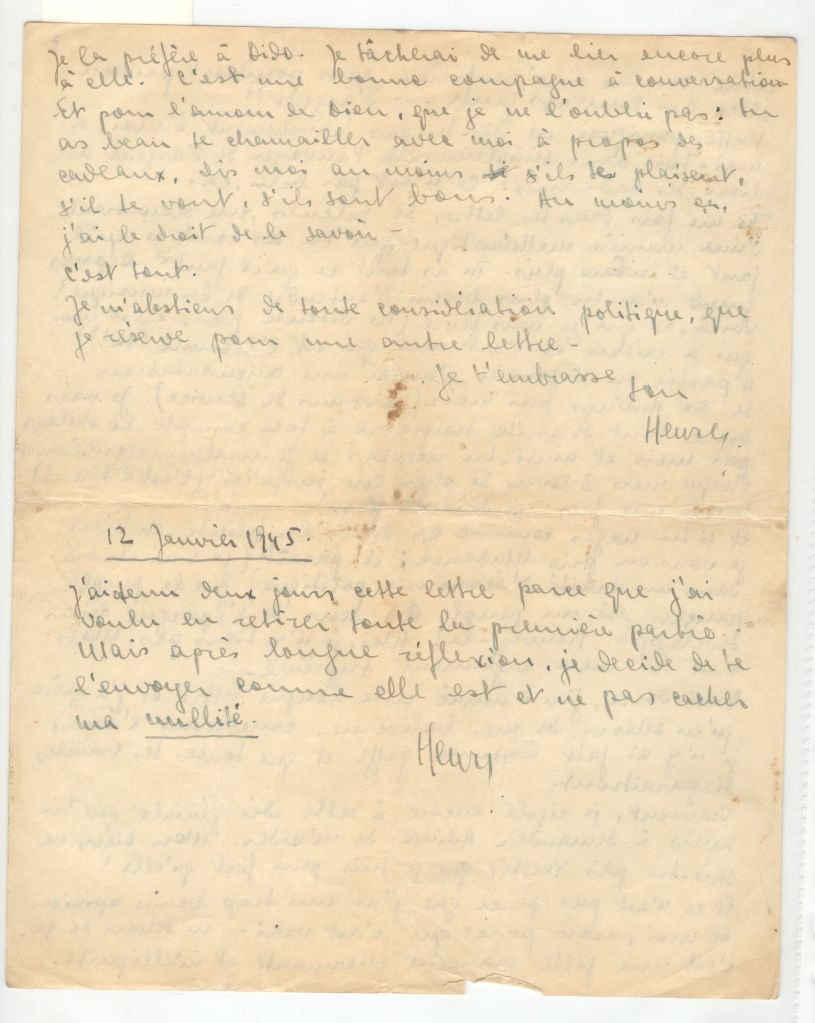 Je la préfère à Dido. Je tâcherai de me lier encore plus
à elle. C'est une bonne compagne à conversation
Et pour l'amour de Dieu, que je ne l'oublie pas: tu
as beau te chamailler avec moi à propos des
cadeaux, dis moi au moins s'ils te plaisent,
s'il te vont, s'ils sont bons. Au moins ça,
j'ai le droit de le savoir -
C'est tout.
Je m'abstiens de toute considération politique, que
je réserve pour une autre lettre -
Je t'embrasse ton
Henri
12 Janvier 1945.
j'ai tenu deux jours cette lettre parce que j'ai
voulu en retirer toute la première partie.
Mais après longue réflexion, je decide de te
l'envoyer comme elle est et ne pas cacher
ma nullité.
Henri